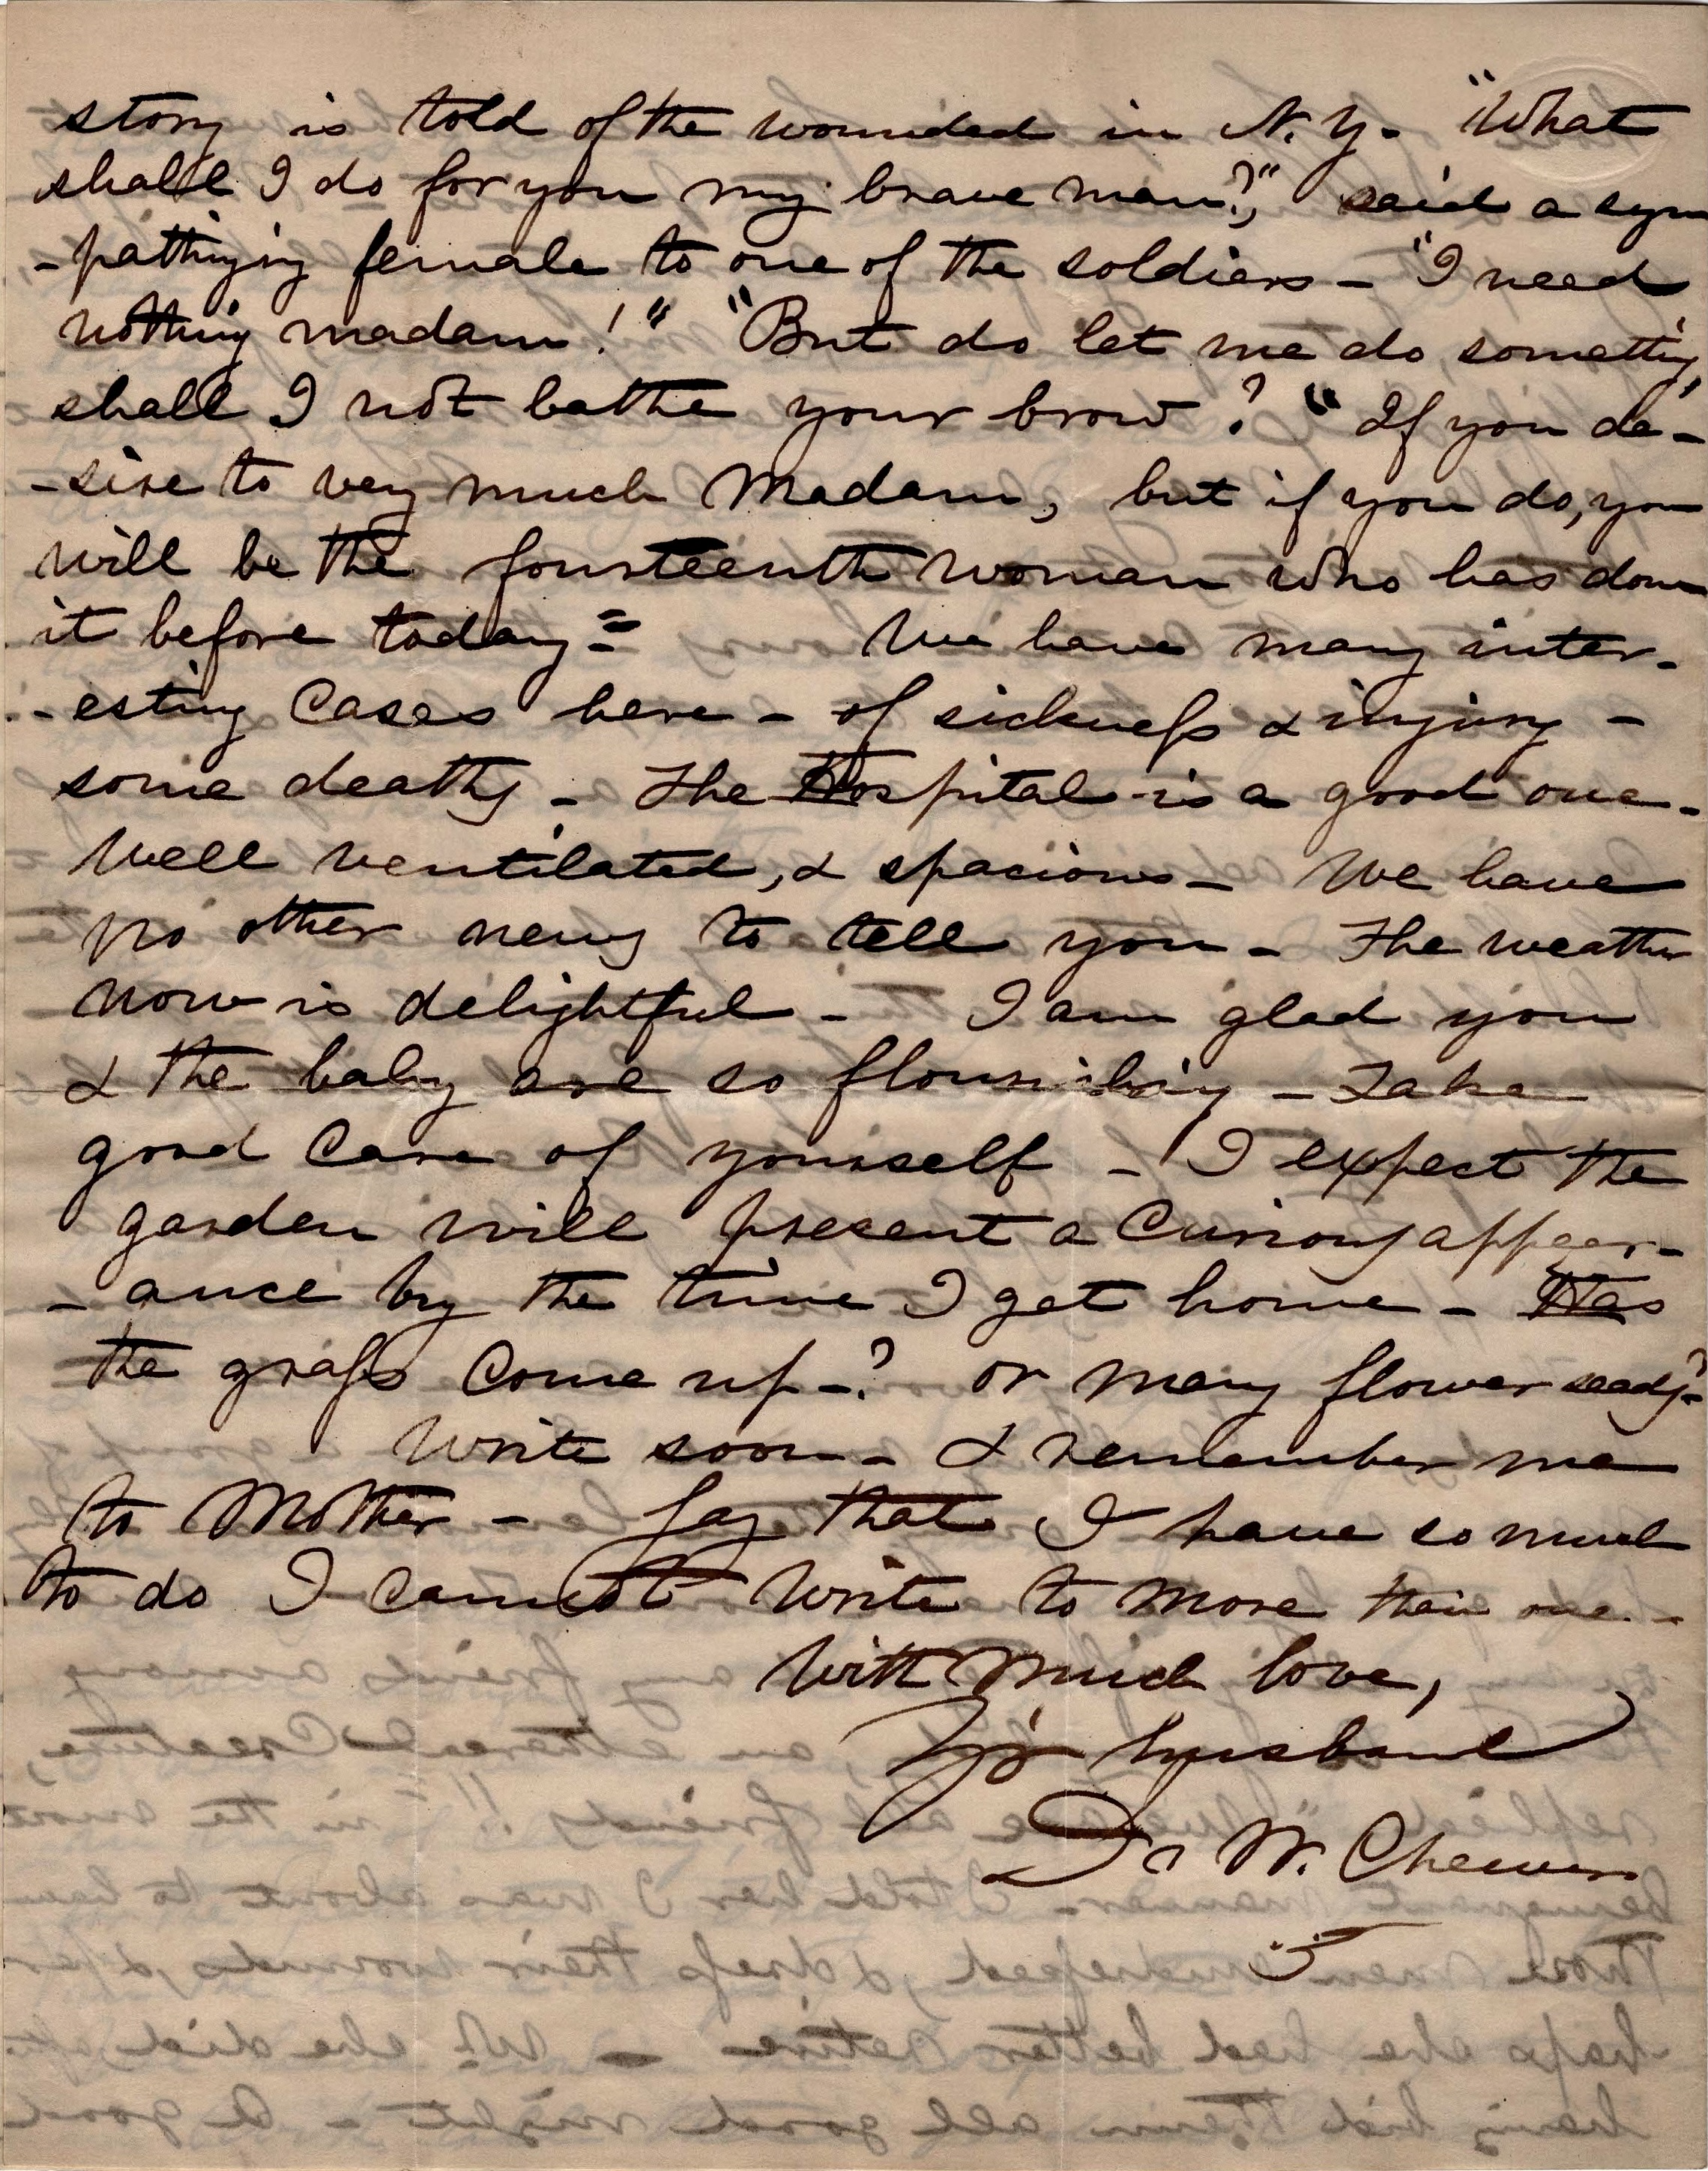 story is told of the wounded in N.Y. "What
shall I do for you my brave man?," said a sym
-pathizing female to one of the soldiers - "I need
nothing madam!" "But do let me do something,
shall I not bathe your brow? " If you de-
-sire to very much Madam, but if you do, you
will be the fourteenth woman who has done
it before today="
We have many inter-
-esting Cases here - of sickness & injury -
some deaths - The Hospital is a good one -
Well ventilated, & spacious - We have
no other news to tell you - The weather
now is delightful - I am glad you
& the baby are so flourishing - Take
good Care of yourself - I expect the
garden will present a Curious appear-
-ance by the time I get home - Has
the grass Come up -? or many flower seeds?
Write soon - & remember me
to Mother - Say that I have so much
to do I cannot write to more than one -
With much love,
Yr husband
Dr W. Cheever
5